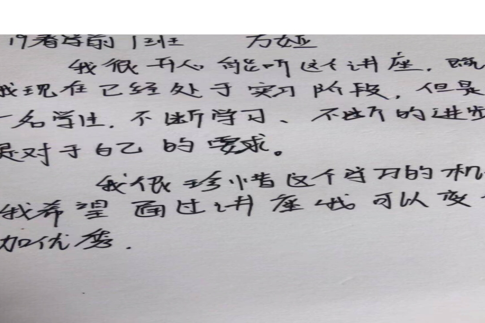 19春学前1班 方娅
我很开心能听这个讲座,
我现在已经处于实习阶段,但是
一名学生,不断学习、不断的进步
是对于自己的要求。
我很珍惜这个学习的机
我希望通过讲座我可以变
加优秀.